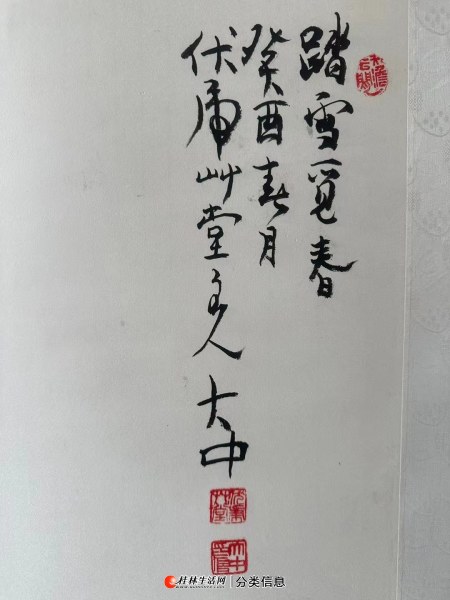 踏雪觅春
癸酉春月
伏虎艸堂主人 大中
桂林生活网 | 分类信息